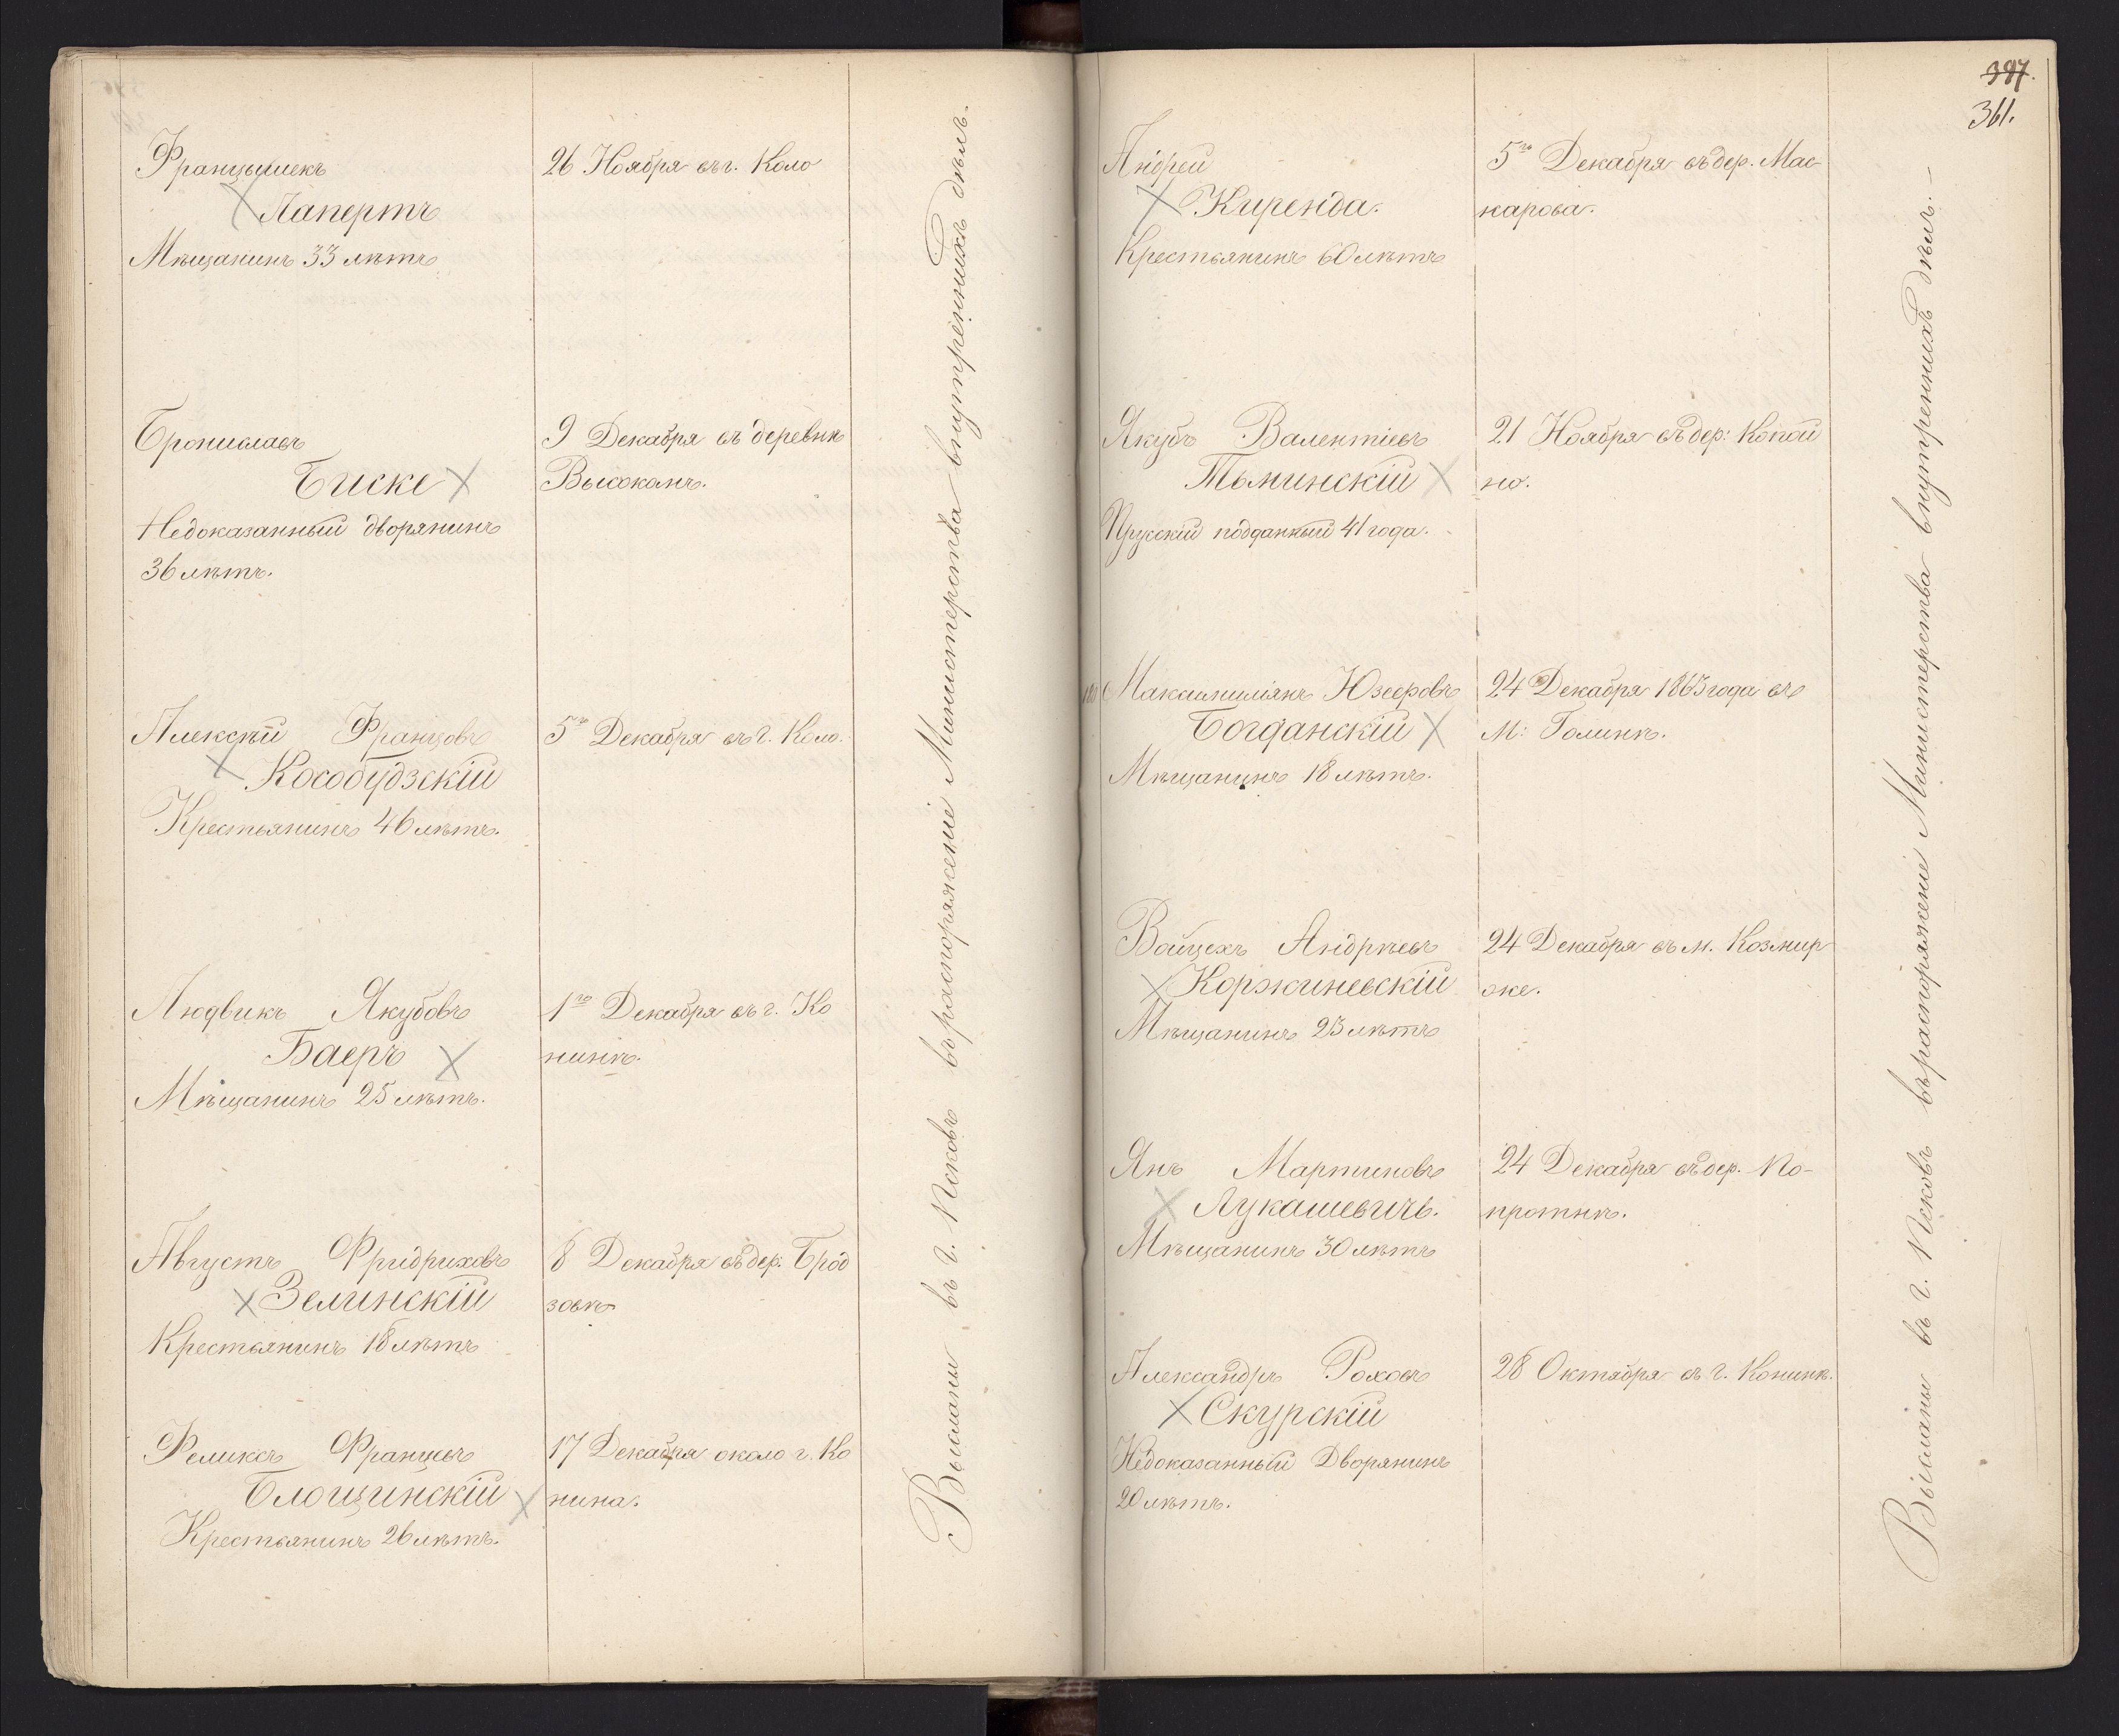 Францышекъ
Лапертъ
Мѣщанинъ 33 лѣтъ
26 Ноября въ г. Коло
Брониславъ
Биске
Недоказанный дворянинъ
36 лѣтъ.
9 Декабря въ деревнѣ
Высоканъ.
Алексѣй Францовъ
Кособудзскій
Крестьянинъ 46 лѣтъ.
5го Декабря въ г. Коло.
Людвикъ Якубовъ
Баеръ
Мѣщанинъ 25 лѣтъ.
1го Декабря въ г. Ко
нинѣ.
Августъ Фридриховъ
Зелинскій
Крестьянинъ 18 лѣтъ
8 Декабря въ дер. Брод
зовѣ
Феликсъ Францовъ
Блощинскій
Крестьянинъ 26 лѣтъ.
17 Декабря около г. Ко
нина.
Высланы въ г. Псковъ въ распоряженіе Министерства внутреннихъ дѣлъ.
397.
361.
Андрей
Киренда.
Крестьянинъ 60 лѣтъ
5го Декабря въ дер. Мас-
карова.
Якубъ Валентіевъ
Тьминскій
Прусскій подданный 41 года.
21 Ноября въ дер: Копой
но.
180 Максимиліянъ Юзефовъ
Богданскій
Мѣщанинъ 18 лѣтъ.
24 Декабря 1863 года въ
М: Голинѣ.
Войцехъ Андрѣевъ
Коржиневскій
Мѣщанинъ 23 лѣтъ
24 Декабря въ м. Козмир
же.
Янъ Мартиновъ
Лукашевичъ.
Мѣщанинъ 30 лѣтъ
24 Декабря въ дер. По-
протнѣ.
Александръ Роховъ
Скурскій
Недоказанный Дворянинъ
20 лѣтъ.
28 Октября въ г. Конинѣ.
Высланы въ г. Псковъ въ распоряженіе Министерства внутреннихъ дѣлъ.–